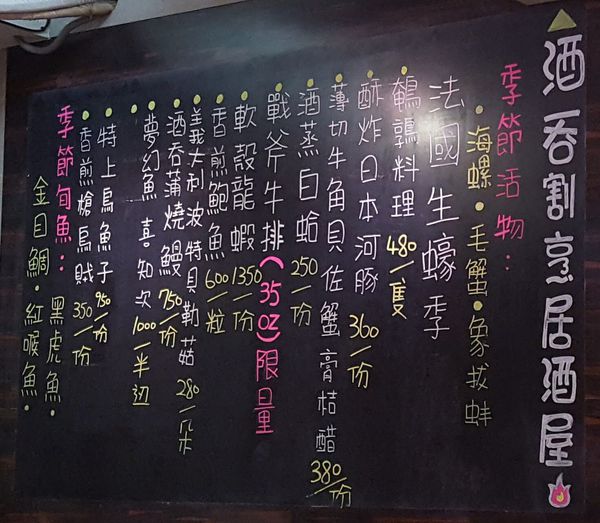 酒吞割烹居酒屋
季節活物：
•海螺•毛蟹•象拔蚌
法國生蠔季
鵪鶉料理480/隻
酥炸日本河豚360/份
薄切牛角貝佐蟹膏桔醋380/份
酒蒸白蛤250/份
戰斧牛排(35oz)限量
軟殼龍蝦1350/份
香煎鮑魚600/粒
義大利波特貝勒菇280/朵
酒吞蒲燒鰻750/份
夢幻魚 喜知次1000/半边
特上烏魚子950/份
香煎槍烏賊350/份
季節旬魚：
黑虎魚•
金目鯛•紅喉魚•